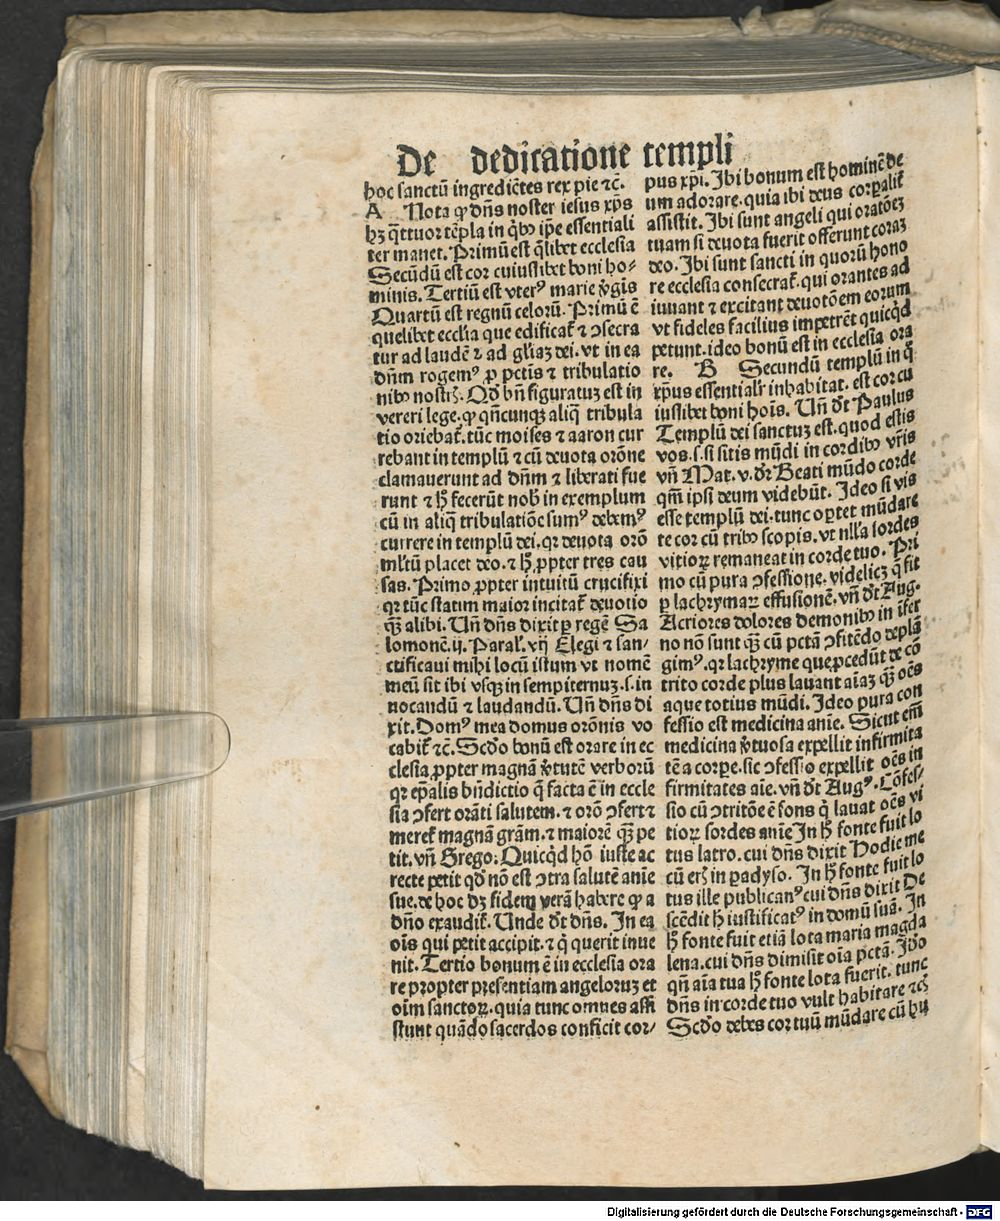 De dedicatione templi
hoc sanctū ingrediētes rex pie ⁊c̄.
A Nota qꝫ dn̄s noster iesus xp̄s
hꝫ q̄ttuor tēpla in qͥbꝰ ip̄e essentiali
ter manet. Primū est q̄libet ecclesia
Secūdū est cor cuiuslibet boni ho⸗
minis. Tertiū est vterꝰ marie v̄gīs
Quartū est regnū celorū. Primū ē
quelibet eccl̄ia que edificat̄ ⁊ ↄsecra
tur ad laudē ⁊ ad gl̄iaꝫ dei. vt in ea
dn̄m rogemꝰ ꝓ pctīs ⁊ tribulatio
nibꝰ nostrꝭ. Qd̄ bn̄ figuratuꝫ est in
veteri lege. qꝫ qn̄cunqꝫ aliq̄ tribula
tio oriebat̄. tūc moises ⁊ aaron cur
rebant in templū ⁊ cū deuota orōne
clamauerunt ad dn̄m ⁊ liberati fue
runt ⁊ h̄ fecerūt nob̄ in exemplum
cū in aliq̄ tribulatiōe sumꝰ debemꝰ
currere in templū dei. qꝛ deuota orō
ml̄tū placet deo. ⁊ h̄ ꝓpter tres cau
sas. Primo ꝓpter intuitū crucifixi
qꝛ tūc statim maior incitat̄ deuotio
qꝫ̄ alibi. Un̄ dn̄s dixit ꝑ regē Sa
lomonē. ij. Paral̓. vij Elegi ⁊ san⸗
ctificaui mihi locū istum vt nomē
meū sit ibi vsqꝫ in sempiternuꝫ .s. in
uocandū ⁊ laudandū. Un̄ dn̄s di
xit. Domꝰ mea domus orōnis vo
cabit̄ ⁊c̄. Scd̄o bonū est orare in ec
clesia ꝓpter magnā v̄tutē verborū
qꝛ ep̄alis bn̄dictio q̄ facta ē in eccle
sia ↄfert orāti salutem. ⁊ orō ↄfert ⁊
meret̄ magnā grām. ⁊ maiorē qꝫ̄ pe
tit. vn̄ Grego: Quicqͥd hō iuste ac
recte petit qd̄ nō est ↄtra salutē anie
sue. de hoc dꝫ fidem verā habere qꝫ a
dn̄o exaudit̄. Unde dt̄ dn̄s. In ea
oīs qui petit accipit. ⁊ qͥ querit inue
nit. Tertio bonum ē in ecclesia ora
re propter presentiam angeloruꝫ et
oīm sanctoꝝ. quia tunc omnes assi
stunt quādo sacerdos conficit cor⸗
pus xp̄i. Ibi bonum est hominē de
um adorare. quia ibi deus corꝑalit̄
assistit. Ibi sunt angeli qui oratōeꝫ
tuam si deuota fuerit offerunt coraꝫ
deo. Ibi sunt sancti in quorū hono
re ecclesia consecrat̄. qui orantes ad
iuuant ⁊ excitant deuotōem eorum
vt fideles facilius impetrēt quicqͥd
petunt. ideo bonū est in ecclesia ora
re. B Secundū templū in q̄
xp̄us essentialr̄ inhabitat. est cor cu
iuslibet boni hoīs. Un̄ dt̄ Paulus
Templū dei sanctuꝫ est. quod estis
vos .s. si sitis mūdi in cordibꝰ vr̄is
vn̄ Mat. v. dr̄ Beati mūdo corde
qm̄ ipsi deum videbūt. Ideo si vis
esse templū dei. tunc oꝑtet mūdare
te cor cū tribꝰ scopis. vt nll̄a sordes
vitioꝝ remaneat in corde tuo. Pri
mo cū pura ↄfessione. videlicꝫ q̄ fit
ꝑ lachrymaꝝ effusionē. vn̄ dt̄ Aug.
Acriores dolores demonibꝰ in īfer
no nō sunt qꝫ̄ cū pctā ↄfitēdo deplā
gimꝰ. qꝛ lachryme que ꝓcedūt de cō
trito corde plus lauant aīaꝫ qꝫ̄ oēs
aque totius mūdi. Ideo pura con
fessio est medicina anīe. Sicut em̄
medicina v̄tuosa expellit infirmita
tē a corꝑe. sic ↄfessio expellit oēs in
firmitates aīe. vn̄ dt̄ Augꝰ. Cōfes⸗
sio cū ↄtritōe ē fons qͥ lauat oēs vi
tioꝝ sordes anīe In h̄ fonte fuit lo
tus latro. cui dn̄s dixit Hodie me
cū erꝭ in ꝑadyso. In h̄ fonte fuit lo
tus ille publicanꝰ cui dn̄s dixit De
scēdit h̄ iustificatꝰ in domū suā. In
h̄ fonte fuit etiā lota maria magda
lena. cui dn̄s dimisit oīa pctā. Iꝓ̄o
qn̄ aīa tua h̄ fonte lota fuerit. tunc
dn̄s in corde tuo vult habitare ⁊cꝭ
Scd̄o debes cor tuū mūdare cū hu
Digitalisierung gefördert durch die Deutsche Forschungsgemeinschaft - DFG